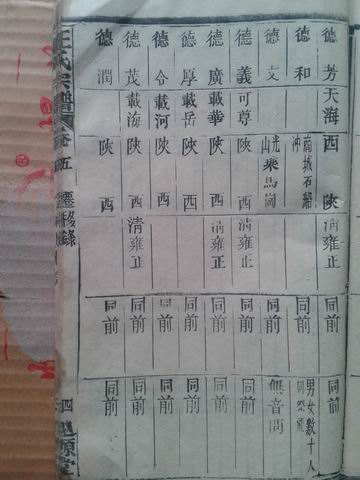 德芳 天海 西陝 清雍正 同前 同前
德和 商城石船冲 同前 男女數十人
德文 光山乘馬崗 同前 無音問
德義 可尊 陝西 清雍正 同前 同前
德廣 載華 陝西 清雍正 同前 同前
德厚 載岳 陝西 同前 同前
德令 載河 陝西 同前 同前
德茂 載海 陝西 清雍正 同前 同前
德潤 陝西 同前 同前
王氏宗譜 卷五 遷移錄 四 源堂